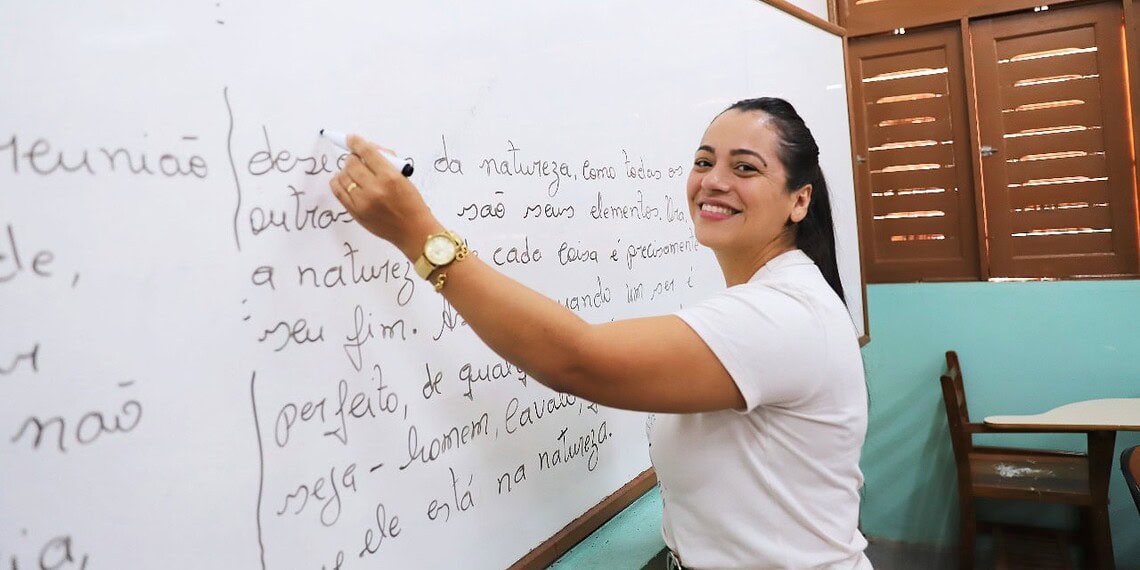 reunião
de,
não
da natureza, como todas os
outras são seus elementos. Ora,
a natureza de cada coisa é precisamente
seu fim. quando um ser é
perfeito, de
seja - homem, cavalo,
ele está na natureza.